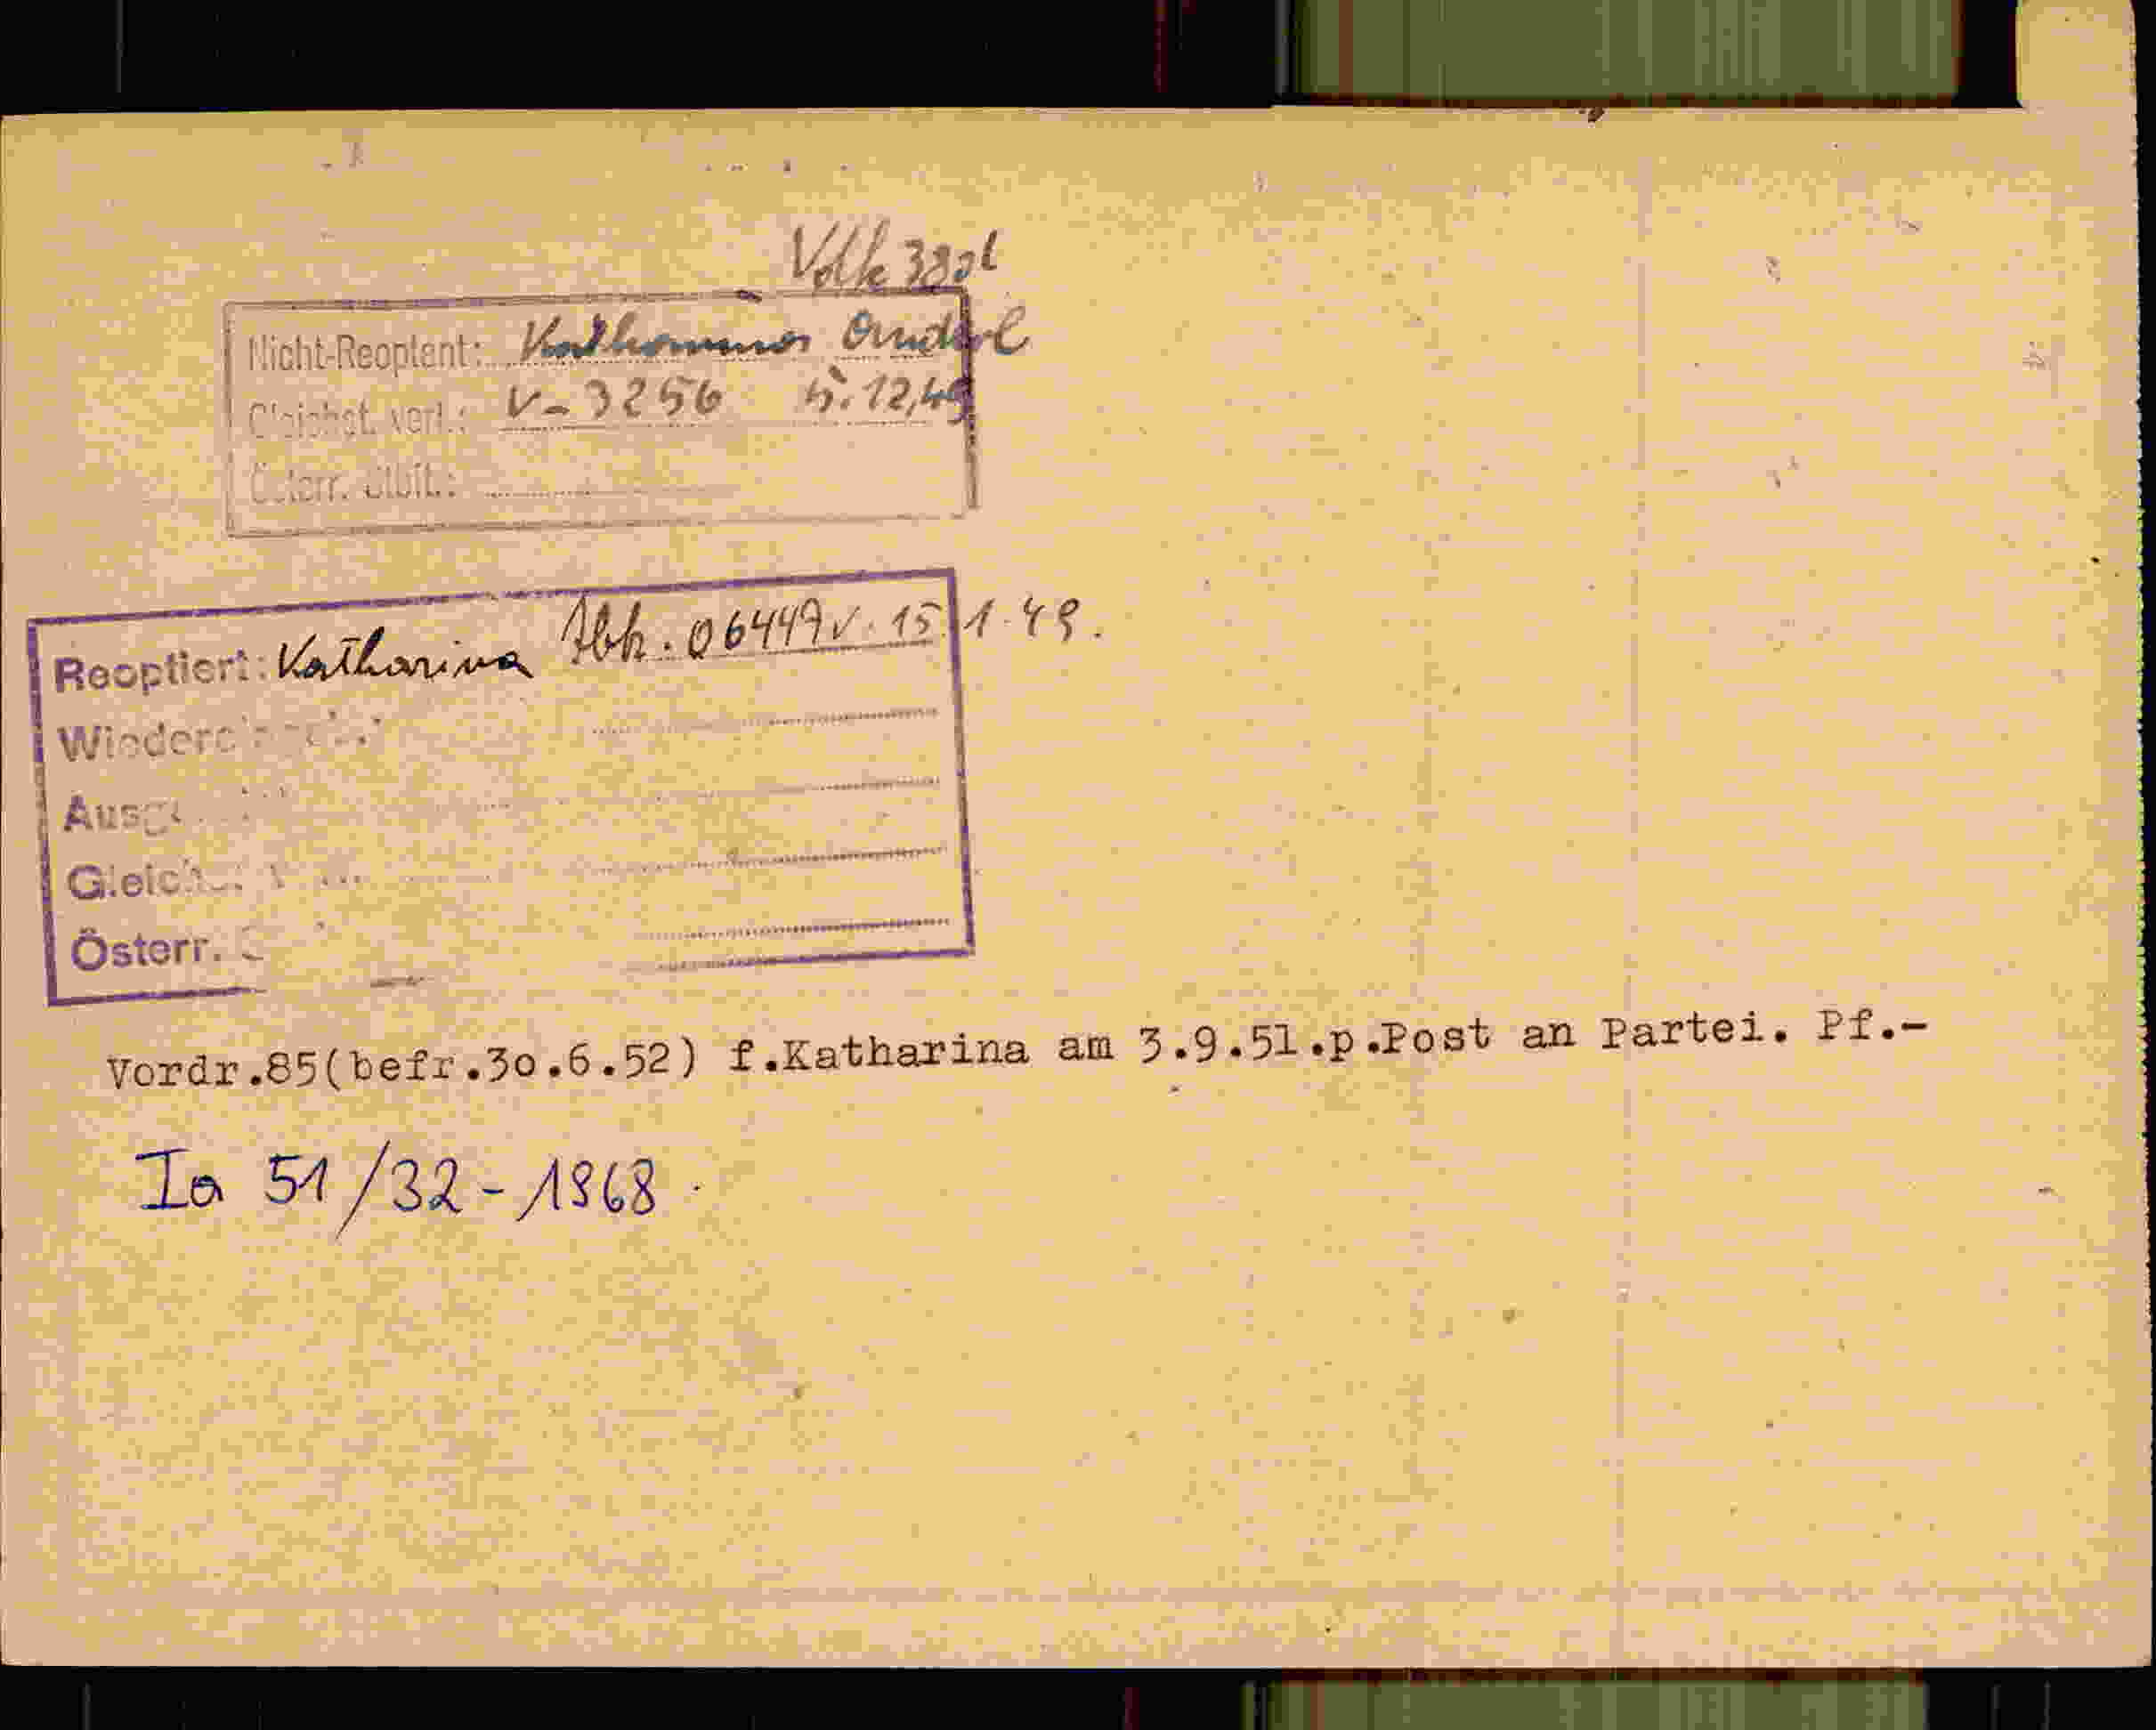 Volk 3801
Nicht-Reoptant: Katharina Anderl
Gleichst. verl.: V-3256 5.12.49
Österr. Stbft.:
Reoptiert: Katharina Abk. 06447 v. 15.1.49.
Ausg
Gleich
Österr.
Vordr.85(befr.30.6.52) f.Katharina am 3.9.51.p.Post an Partei. Pf.-
Ia 51/32-1968.